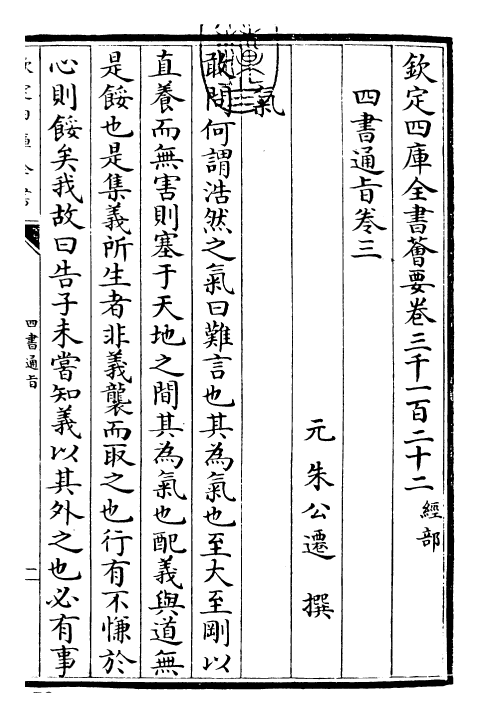 欽定四庫全書薈要卷三千一百二十二 經部
四書通旨卷三
元 朱公遷 撰
氣
敢問何謂浩然之氣曰難言也其為氣也至大至剛以
直養而無害則塞于天地之間其為氣也配義與道無
是餒也是集義所生者非義襲而取之也行有不慊於
心則餒矣我故曰告子未嘗知義以其外之也必有事
四書通旨